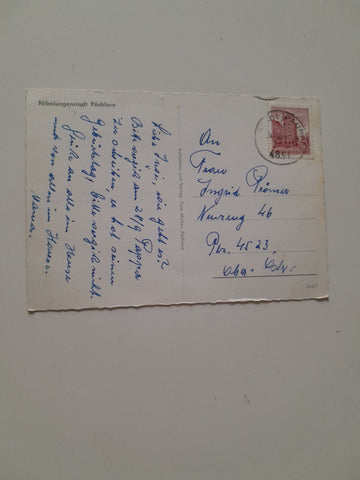 Nibelungenstadt Pöchlarn
Liebe Inge, wie geht es?
Bitte vergiß am 28/9 Pappa
zu schreiben, er hat seinen
Geburtstag, bitte vergiß nicht.
Grüße an alle im Hause
und von allen im Hause.
Mama.
Aufnahme und Verlag
An
Frau
Ingrid
Neuzeug 46
Pz. 4523